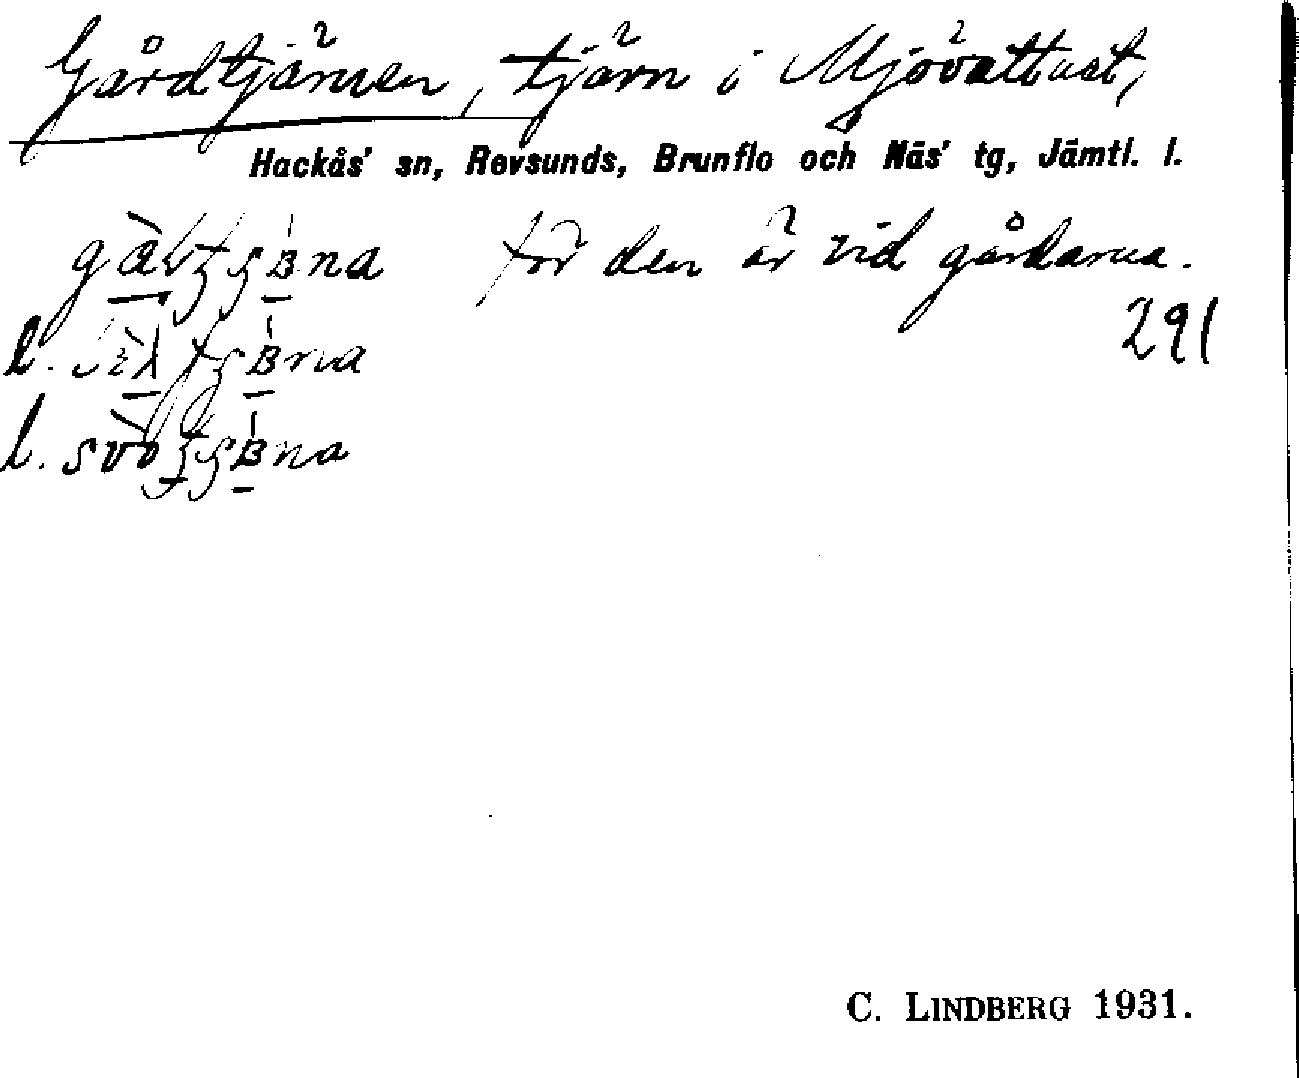 Gårdtjärnen, tjärn i Mjövattnet,
Hackås' sn, Revsunds, Brunflo och Näs' tg, Jämtl. l.
för den är vid gårdarna.
291
l.
l.
C. LINDBERG 1931.